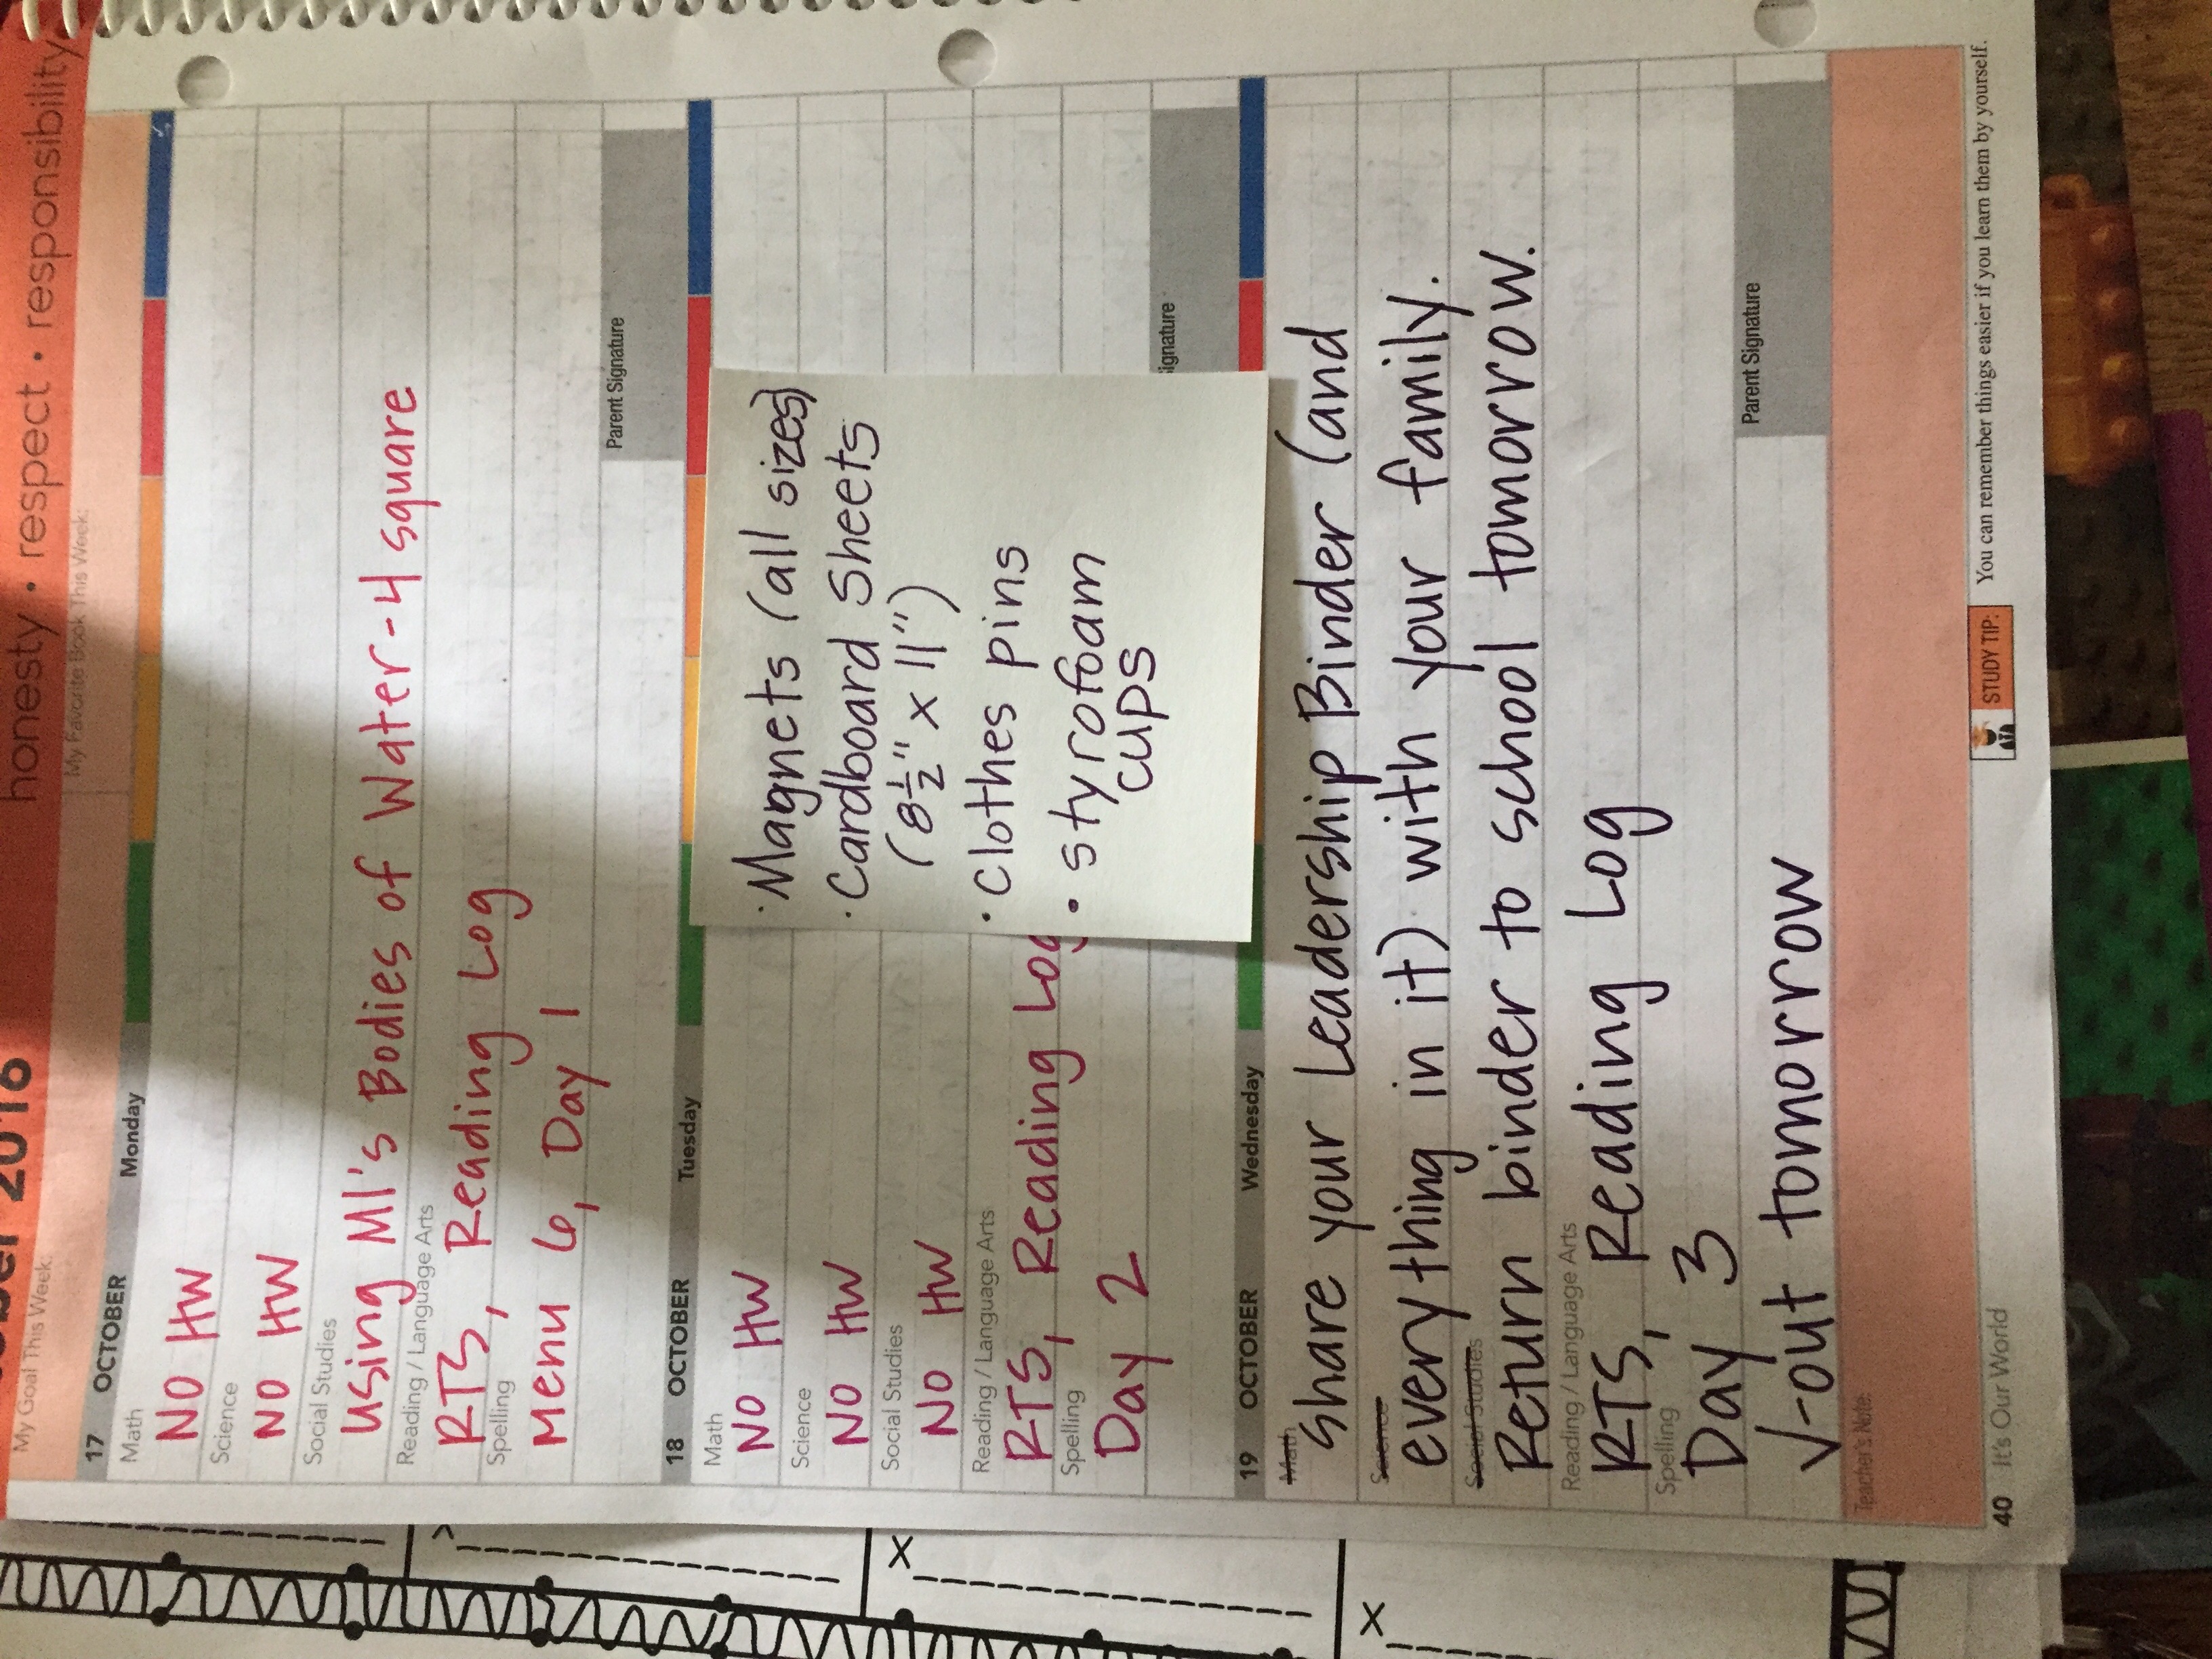 honesty • respect • responsibility
2016
My Goal This Week:
My Favorite Book This Week:
17 OCTOBER Monday
Math
NO HW
Science
NO HW
Social Studies
using MI's Bodies of Water-4 square
Reading / Language Arts
RTS, Reading Log
Spelling
Menu 6, Day 1
Parent Signature
18 OCTOBER Tuesday
Math
NO HW
Science
NO HW
Social Studies
NO HW
Reading / Language Arts
RTS, Reading Log
Spelling
Day 2
ignature
• Magnets (all sizes)
• Cardboard Sheets
(8 1/2" x 11")
• Clothes pins
• styrofoam
cups
19 OCTOBER Wednesday
Math
Share your Leadership Binder (and
Science
everything in it) with your family.
Social Studies
Return binder to school tomorrow.
Reading / Language Arts
RTS, Reading Log
Spelling
Day 3
V-out tomorrow
Parent Signature
Teacher's Note:
40 It's Our World
STUDY TIP: You can remember things easier if you learn them by yourself.
X
X